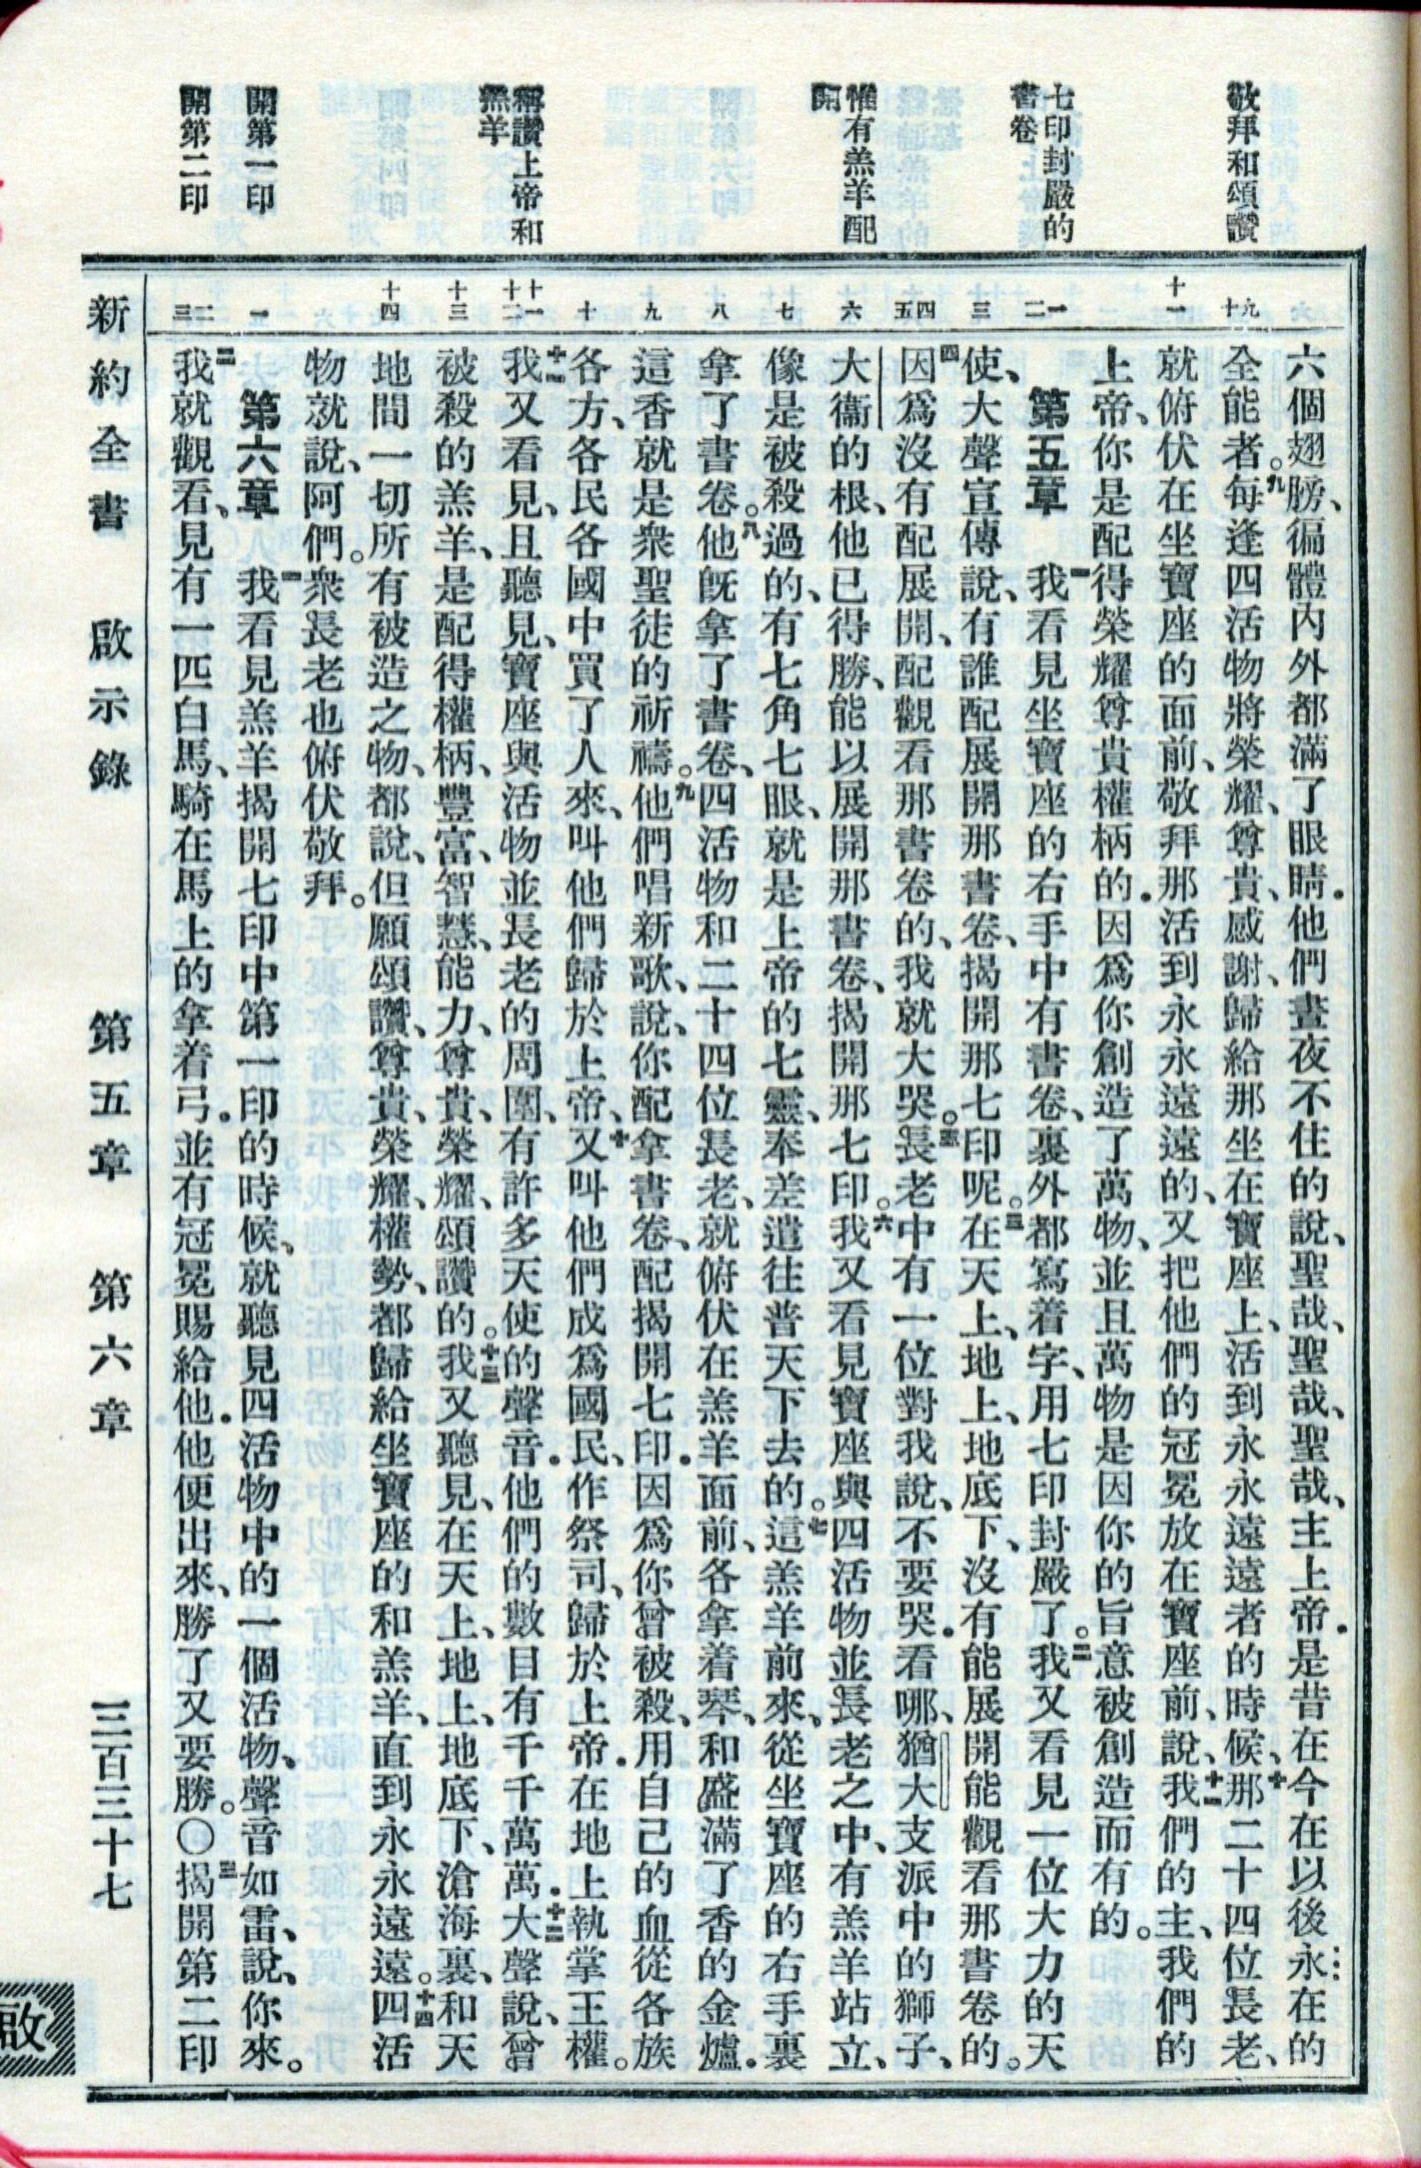 敬拜和頌讚
七印封嚴的
書卷
惟有羔羊配
開
稱讚上帝和
羔羊
開第一印
開第二印
六個翅膀、徧體內外都滿了眼睛．他們晝夜不住的說、聖哉、聖哉、聖哉、主上帝．是昔在今在以後永在的
全能者。九每逢四活物將榮耀、尊貴、感謝、歸給那坐在寶座上、活到永永遠遠者的時候、十那二十四位長老、
就俯伏在坐寶座的面前、敬拜那活到永永遠遠的、又把他們的冠冕放在寶座前、說、十一我們的主、我們的
上帝、你是配得榮耀尊貴權柄的．因爲你創造了萬物、並且萬物是因你的旨意被創造而有的。
第五章 一我看見坐寶座的右手中有書卷、裏外都寫着字、用七印封嚴了。二我又看見一位大力的天
使、大聲宣傳說、有誰配展開那書卷、揭開那七印呢。三在天上、地上、地底下、沒有能展開能觀看那書卷的。
四因爲沒有配展開、配觀看那書卷的、我就大哭。五長老中有一位對我說、不要哭．看哪、猶大支派中的獅子、
大衞的根、他已得勝、能以展開那書卷、揭開那七印。六我又看見寶座與四活物並長老之中、有羔羊站立、
像是被殺過的、有七角七眼、就是上帝的七靈、奉差遣往普天下去的。七這羔羊前來、從坐寶座的右手裏
拿了書卷。八他既拿了書卷、四活物和二十四位長老、就俯伏在羔羊面前、各拿着琴、和盛滿了香的金爐．
這香就是衆聖徒的祈禱。九他們唱新歌、說、你配拿書卷、配揭開七印．因爲你曾被殺、用自己的血從各族
各方、各民各國中買了人來、叫他們歸於上帝、十又叫他們成爲國民、作祭司、歸於上帝．在地上執掌王權。
十一我又看見、且聽見、寶座與活物並長老的周圍、有許多天使的聲音．他們的數目有千千萬萬．十二大聲說、曾
被殺的羔羊、是配得權柄、豐富、智慧、能力、尊貴、榮耀、頌讚的。十三我又聽見、在天上、地上、地底下、滄海裏、和天
地間一切所有被造之物、都說、但願頌讚、尊貴、榮耀、權勢、都歸給坐寶座的和羔羊、直到永永遠遠。十四四活
物就說、阿們。衆長老也俯伏敬拜。
第六章 一我看見羔羊揭開七印中第一印的時候、就聽見四活物中的一個活物、聲音如雷、說、你來。
二我就觀看、見有一匹白馬、騎在馬上的拿着弓．並有冠冕賜給他．他便出來、勝了又要勝。〇三揭開第二印
九十
十一
一二
三
四五
六
七
八
九
十
十一十二
十三
十四
一
二三
新約全書 啟示錄 第五章 第六章 三百三十七
啟